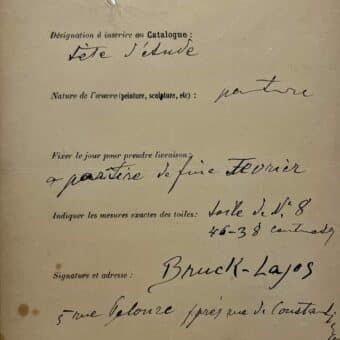 Désignation à inscrire au Catalogue :
Tête d'étude
Nature de l'œuvre (peinture, sculpture, etc) : peinture
Fixer le jour pour prendre livraison :
à partire de fine Fevrier
Indiquer les mesures exactes des toiles : toile de Nº 8
46-38
Signature et adresse : Bruck-Lajos
5 rue Pelouze près rue de